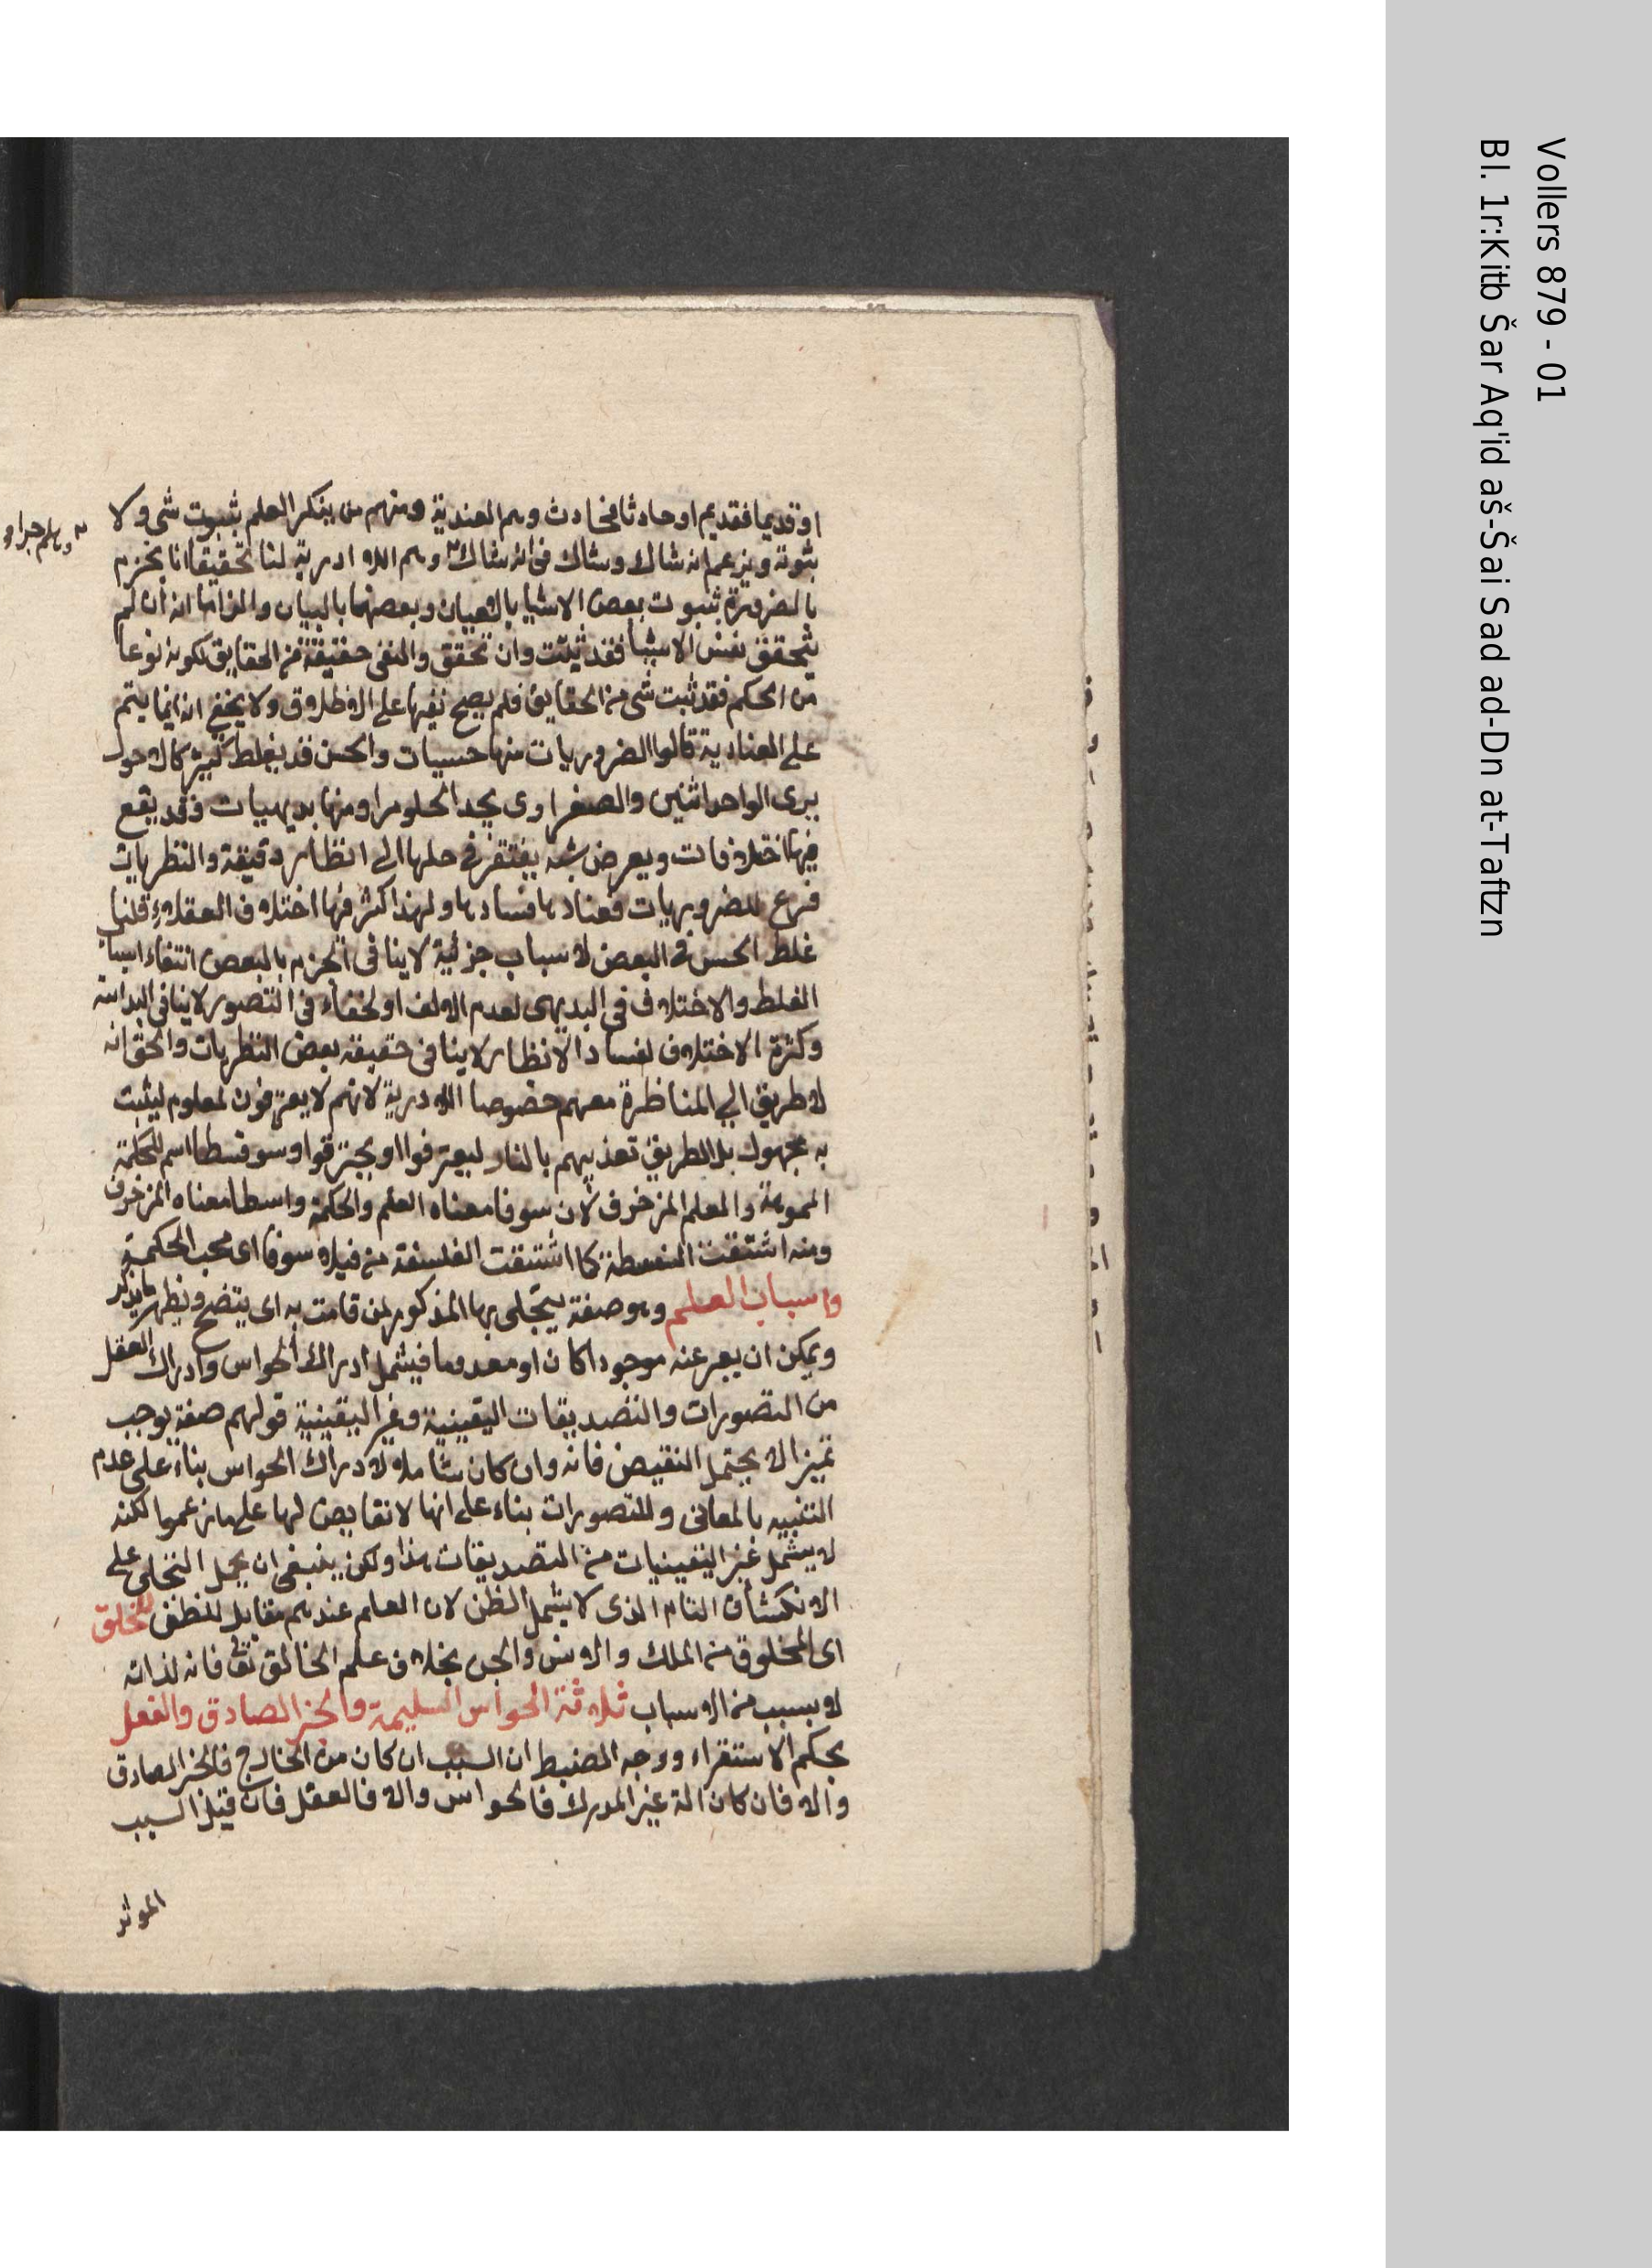 او قديما فقديم او حادثا فحادث وهم العندية ومنهم من ينكر العلم بثبوت شى ولا
ثبوته ويزعم انه شاك وشاك فى انه شاك وهم اللا ادرية لنا تحقيقا انا نجزم
وهلم جرا
بالضرورة بثبوت بعض الاشيا بالعيان وبعضها بالبيان والزاما انه ان لم
يتحقق نفى الاشيا فقد ثبتت وان تحقق والنفى حقيقة من الحقايق لكونه نوعا
من الحكم فقد ثبت شى من الحقايق فلم يصح نفيها على الاطلاق ولا يخفى انه انما يتم
على العنادية قالوا الضروريات منها حسيات والحس قد يغلط كثيرا كالاحول
يرى الواحد اثنين والصفراوى يجد الحلو مرا ومنها بديهيات وقد يقع
فيها اختلافات ويعرض شبه يفتقر فى حلها الى انظار دقيقة والنظريات
فرع للضروريات ففسادها فسادها ولهذا كثر فيها اختلاف العقلاء قلنا
غلط الحس فى البعض لاسباب جزئية لا ينافى الجزم بالبعض انتفاء اسباب
الغلط والاختلاف فى البديهى لعدم الالف او لخفاء فى التصور لا ينافى البداهة
وكثرة الاختلاف لفساد الانظار لا ينافى حقيقة بعض النظريات والحق انه
لا طريق الى المناظرة معهم خصوصا اللاادرية لانهم لا يعترفون لمعلوم ليثبت
به مجهول بل الطريق تعذيبهم بالنار ليعترفوا او يحترقوا وسوفسطا اسم للحكمة
المموهة والعلم المزخرف لان سوفا معناه العلم والحكمة واسطا معناه المزخرف
ومنه اشتقت السفسطة كما اشتقت الفلسفة من فيلا سوفا اى محب الحكمة
واسباب العلم وهو صفة يتجلى بها المذكور لمن قامت به اى يتضح ويظهر ما يذكر
ويمكن ان يعبر عنه موجودا كان او معدوما فيشمل ادراك الحواس وادراك العقل
من التصورات والتصديقات اليقينية وغير اليقينية قولهم صفة يوجب
تميزا لا يحتمل النقيض فانه وان كان شاملا لادراك الحواس بناء على عدم
التقييد بالمعانى وللتصورات بناء على انها لا نقايض لها على ما زعموا لكنه
لا يشمل غير اليقينيات من التصديقات هذا ولكن ينبغى ان يحمل التجلى على
الانكشاف التام الذى لا يشمل الظن لان العلم عندهم مقابل للظن للخلق
اى المخلوق من الملك والانس والجن بخلاف علم الخالق تع فانه لذاته
لا بسبب من الاسباب ثلاثة الحواس السليمة والخبر الصادق والعقل
بحكم الاستقراء ووجه الضبط ان السبب ان كان من الخارج فالخبر الصادق
والا فان كان الة غير المدرك فالحواس والا فالعقل فان قيل السبب
الموثر
Vollers 879 - 01
Bl. 1r:Kitb Šar Aq'id aš-Šai Sad ad-Dn at-Taftzn